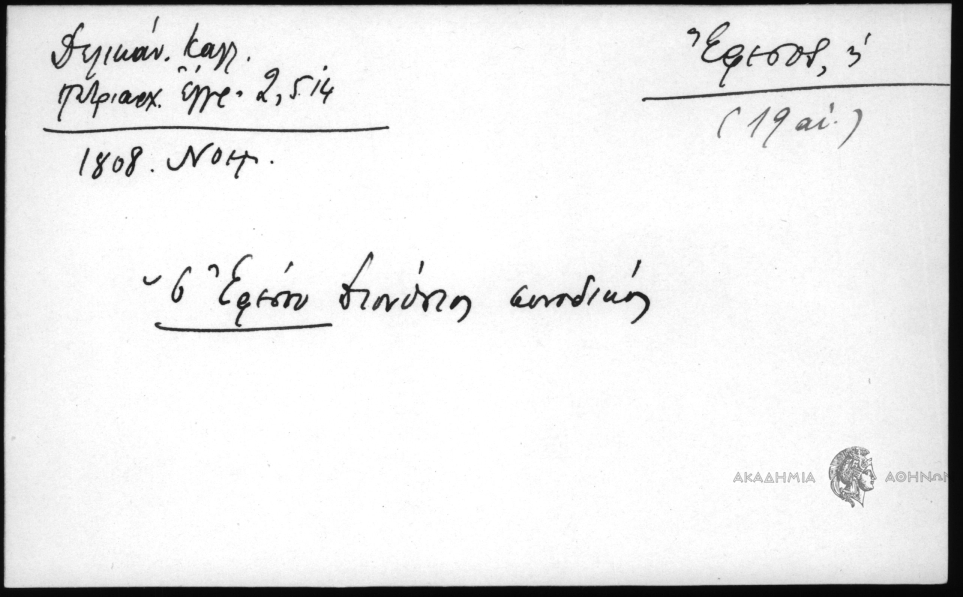 Δελικάν. Καλλ.
πατριαρχ. ἔγγρ. 2, 514
1808. Νοεμ.
Ἔφεσος, ἡ
(19 αἰ.)
ὁ Ἐφέσου Διονύσιος συνοδικός
ΑΚΑΔΗΜΙΑ ΑΘΗΝΩΝ